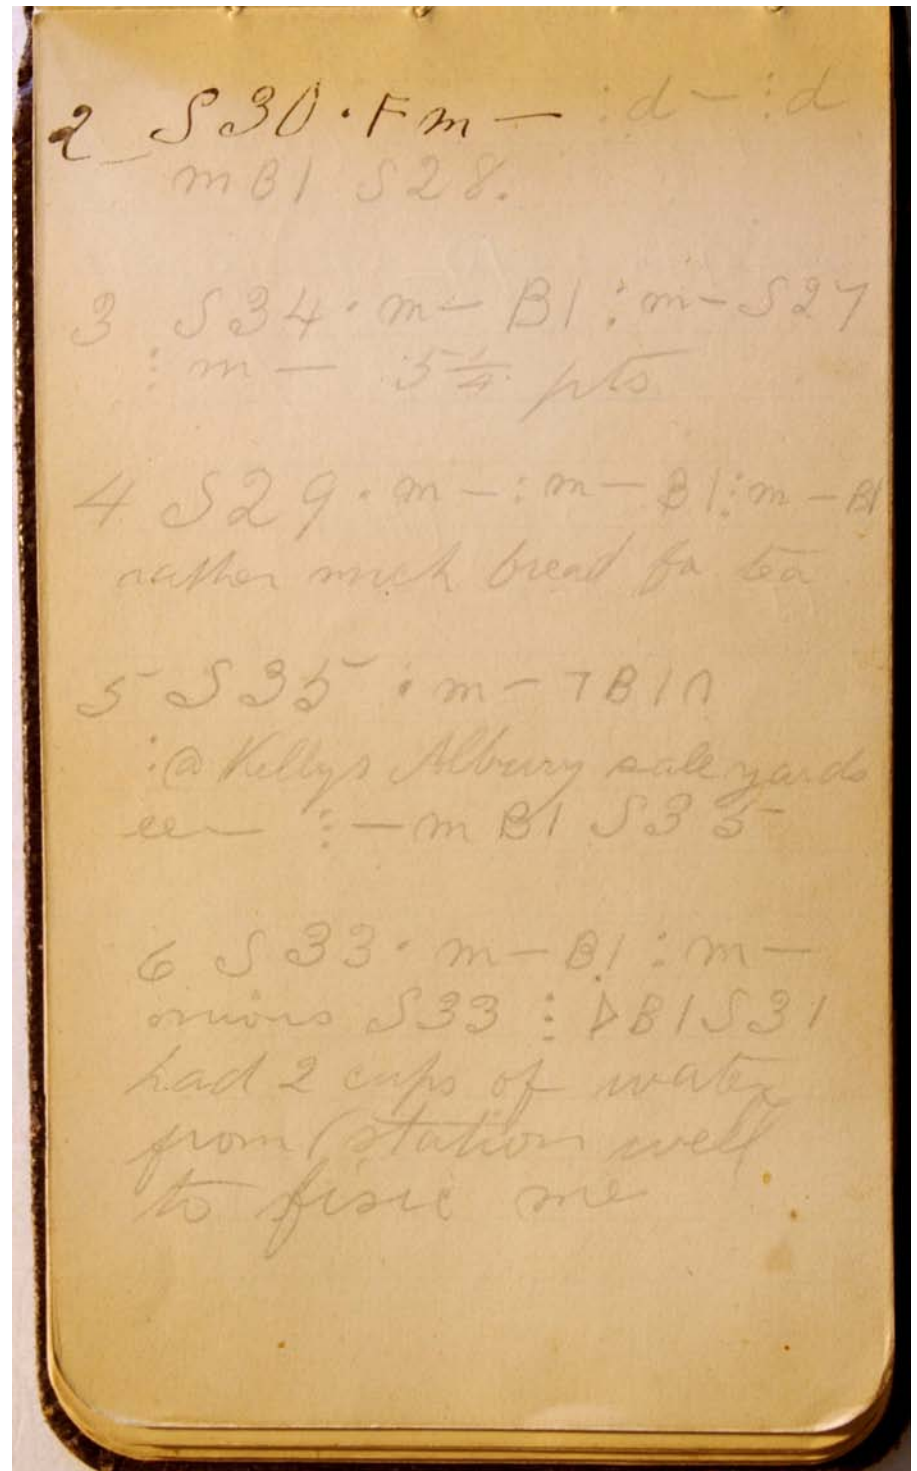 2 S30 · Fm — :d — :d
mB1 S28.
3 S34 · m — B1 : m — S27
: m — 5 1/4 pts
4 S29 · m — : m — B1 : m — B1
rather much bread for tea
5 S35 · m — 7B1∩
: @ Kellys Albury sale yards
⋮ — m B1 S35
6 S33 · m — B1 : m —
onions S33 ⋮ DB1S31
had 2 cups of water
from station well
to fisic me